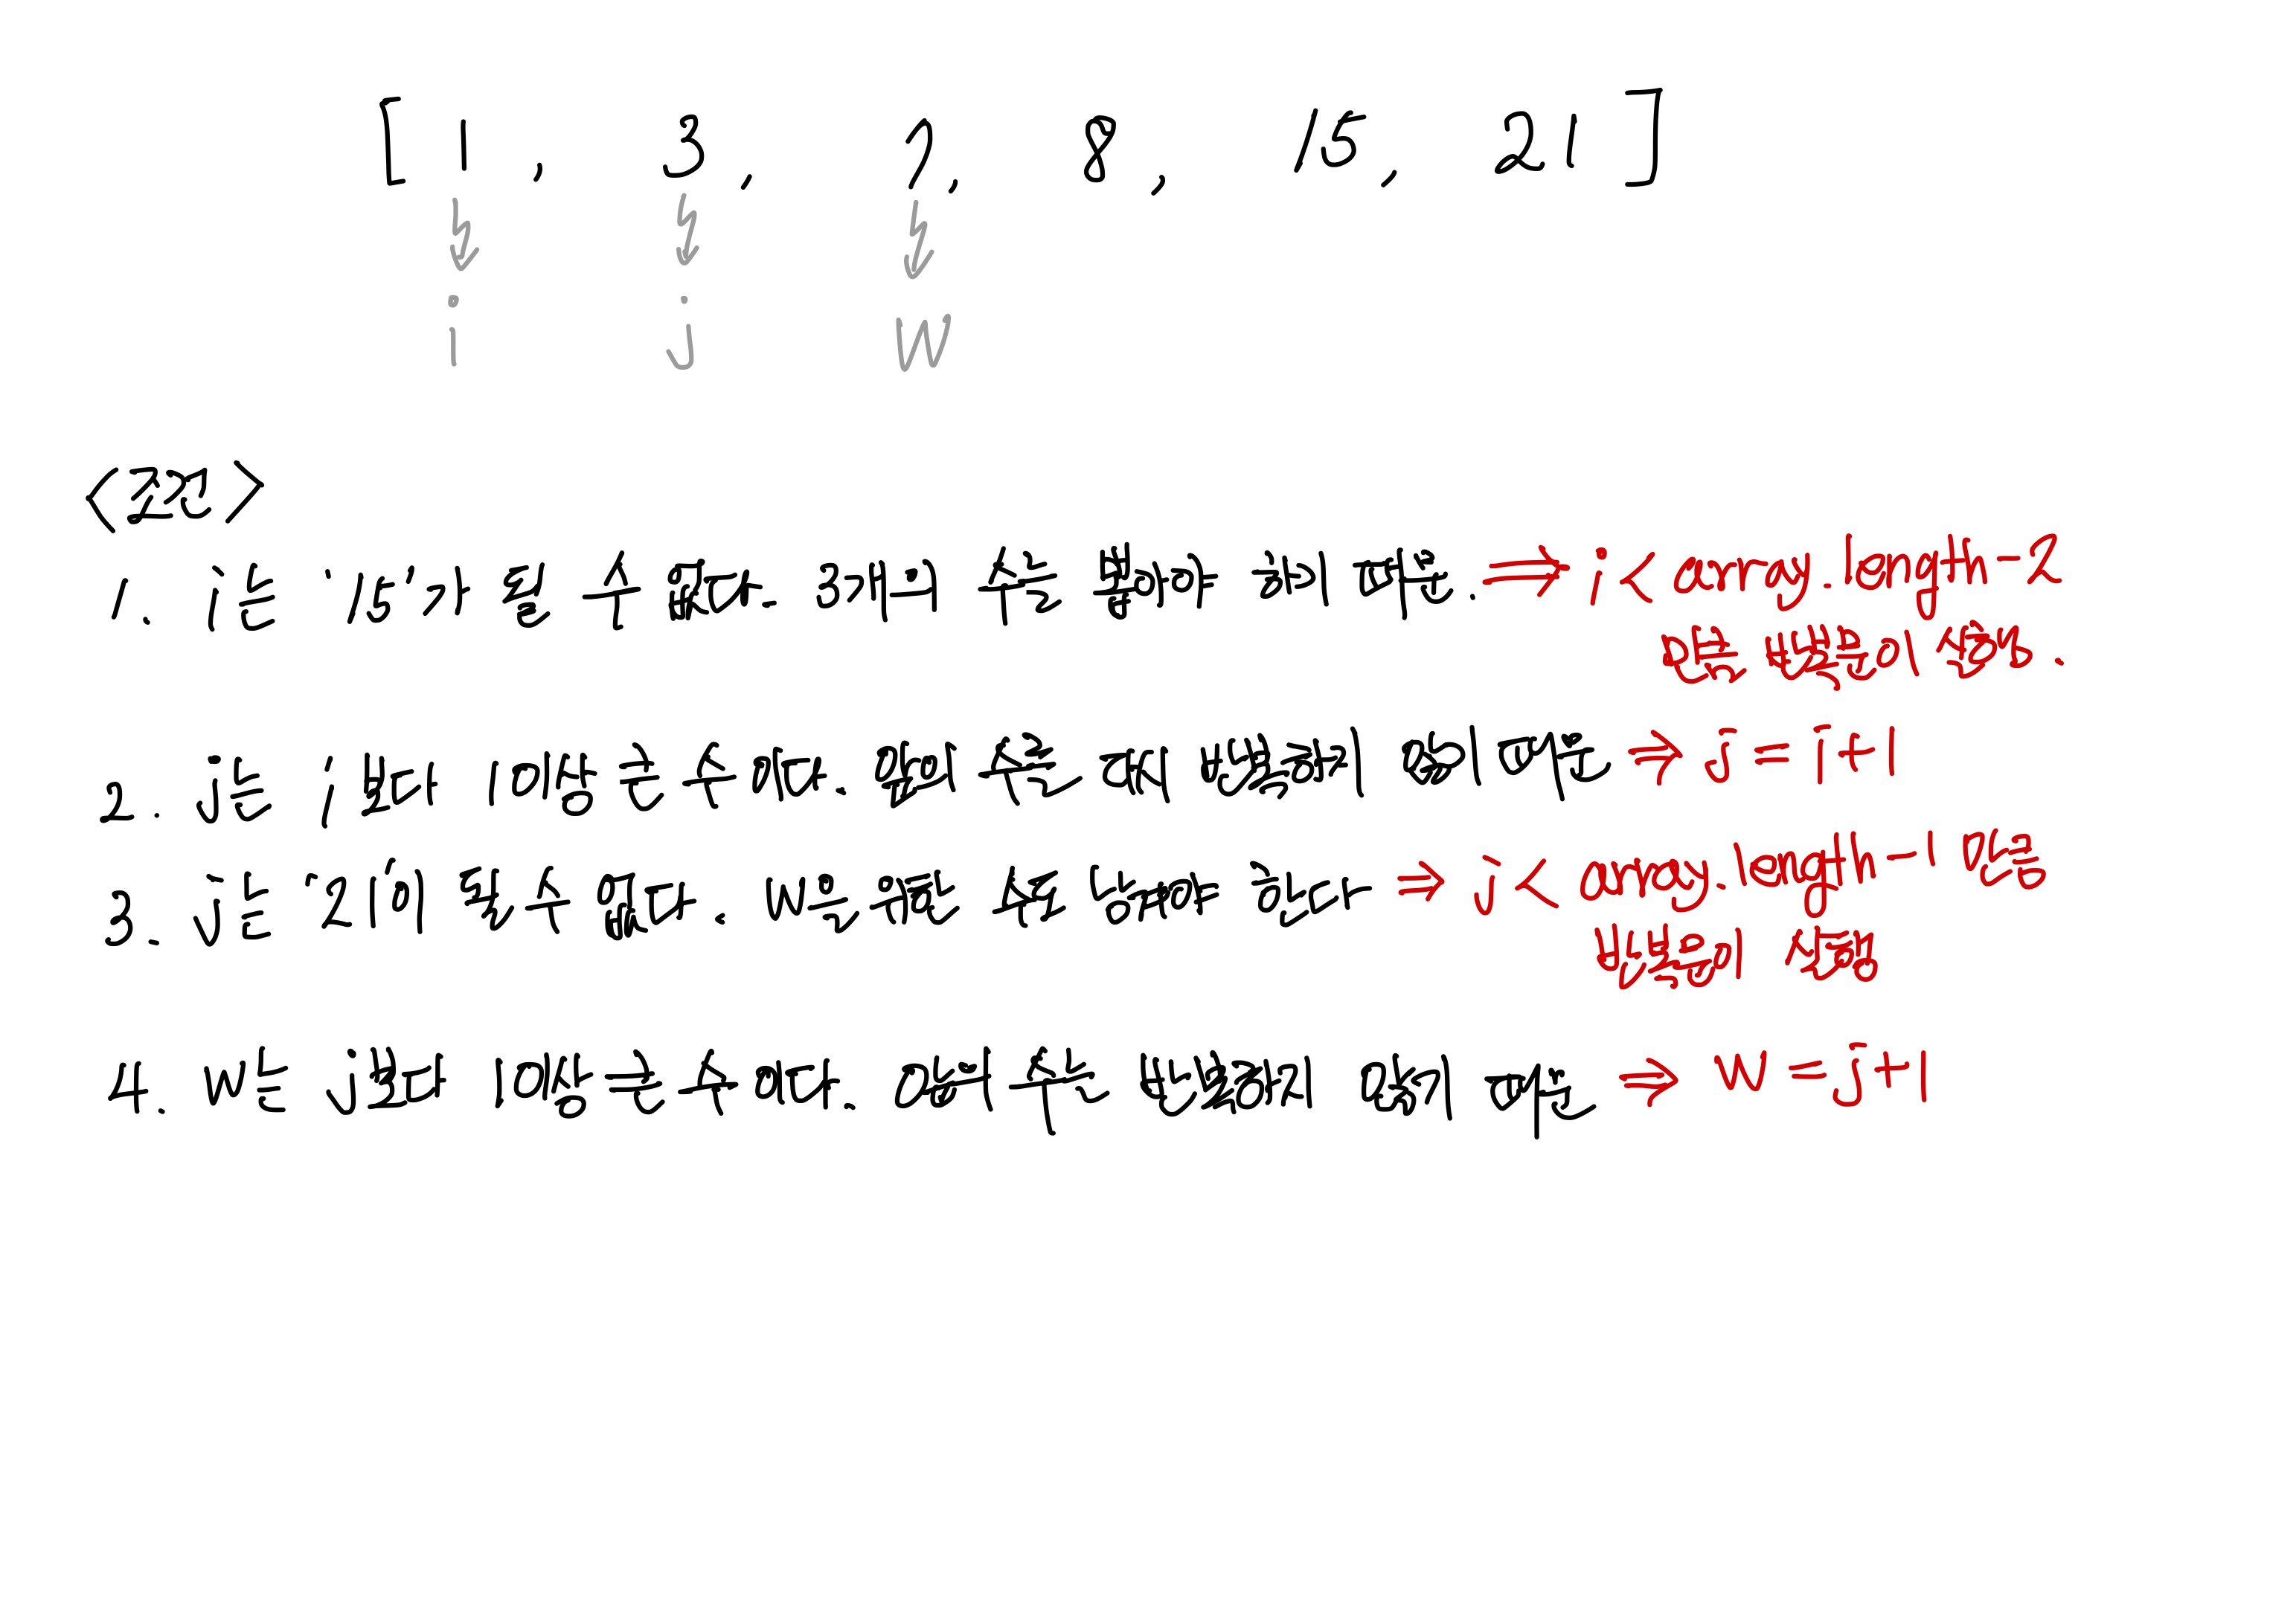 [ 1, 3, 7, 8, 15, 21 ]
i j w
<조건>
1. i는 '15'가 될 수 없다. 3개의 수를 뽑아야 하기 때문. ⇒ i < array.length-2
만큼 반복문이 실행.
2. j는 i보다 1이상 큰 수이다. 앞의 수는 반복하지 않기 때문 → j = i+1
3. j는 '21'이 될 수 없다. w는 수를 남겨야 한다 ⇒ j < array.length-1 만큼
반복문이 실행
4. w는 j보다 1이상 큰 수이다. 앞의 수는 반복하지 않기 때문 ⇒ w = j+1